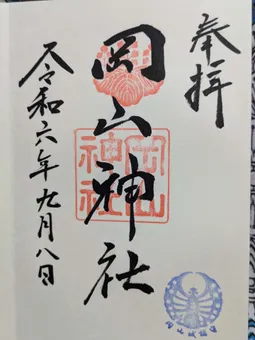 奉拝
岡山神社
岡山神社
令和六年九月八日